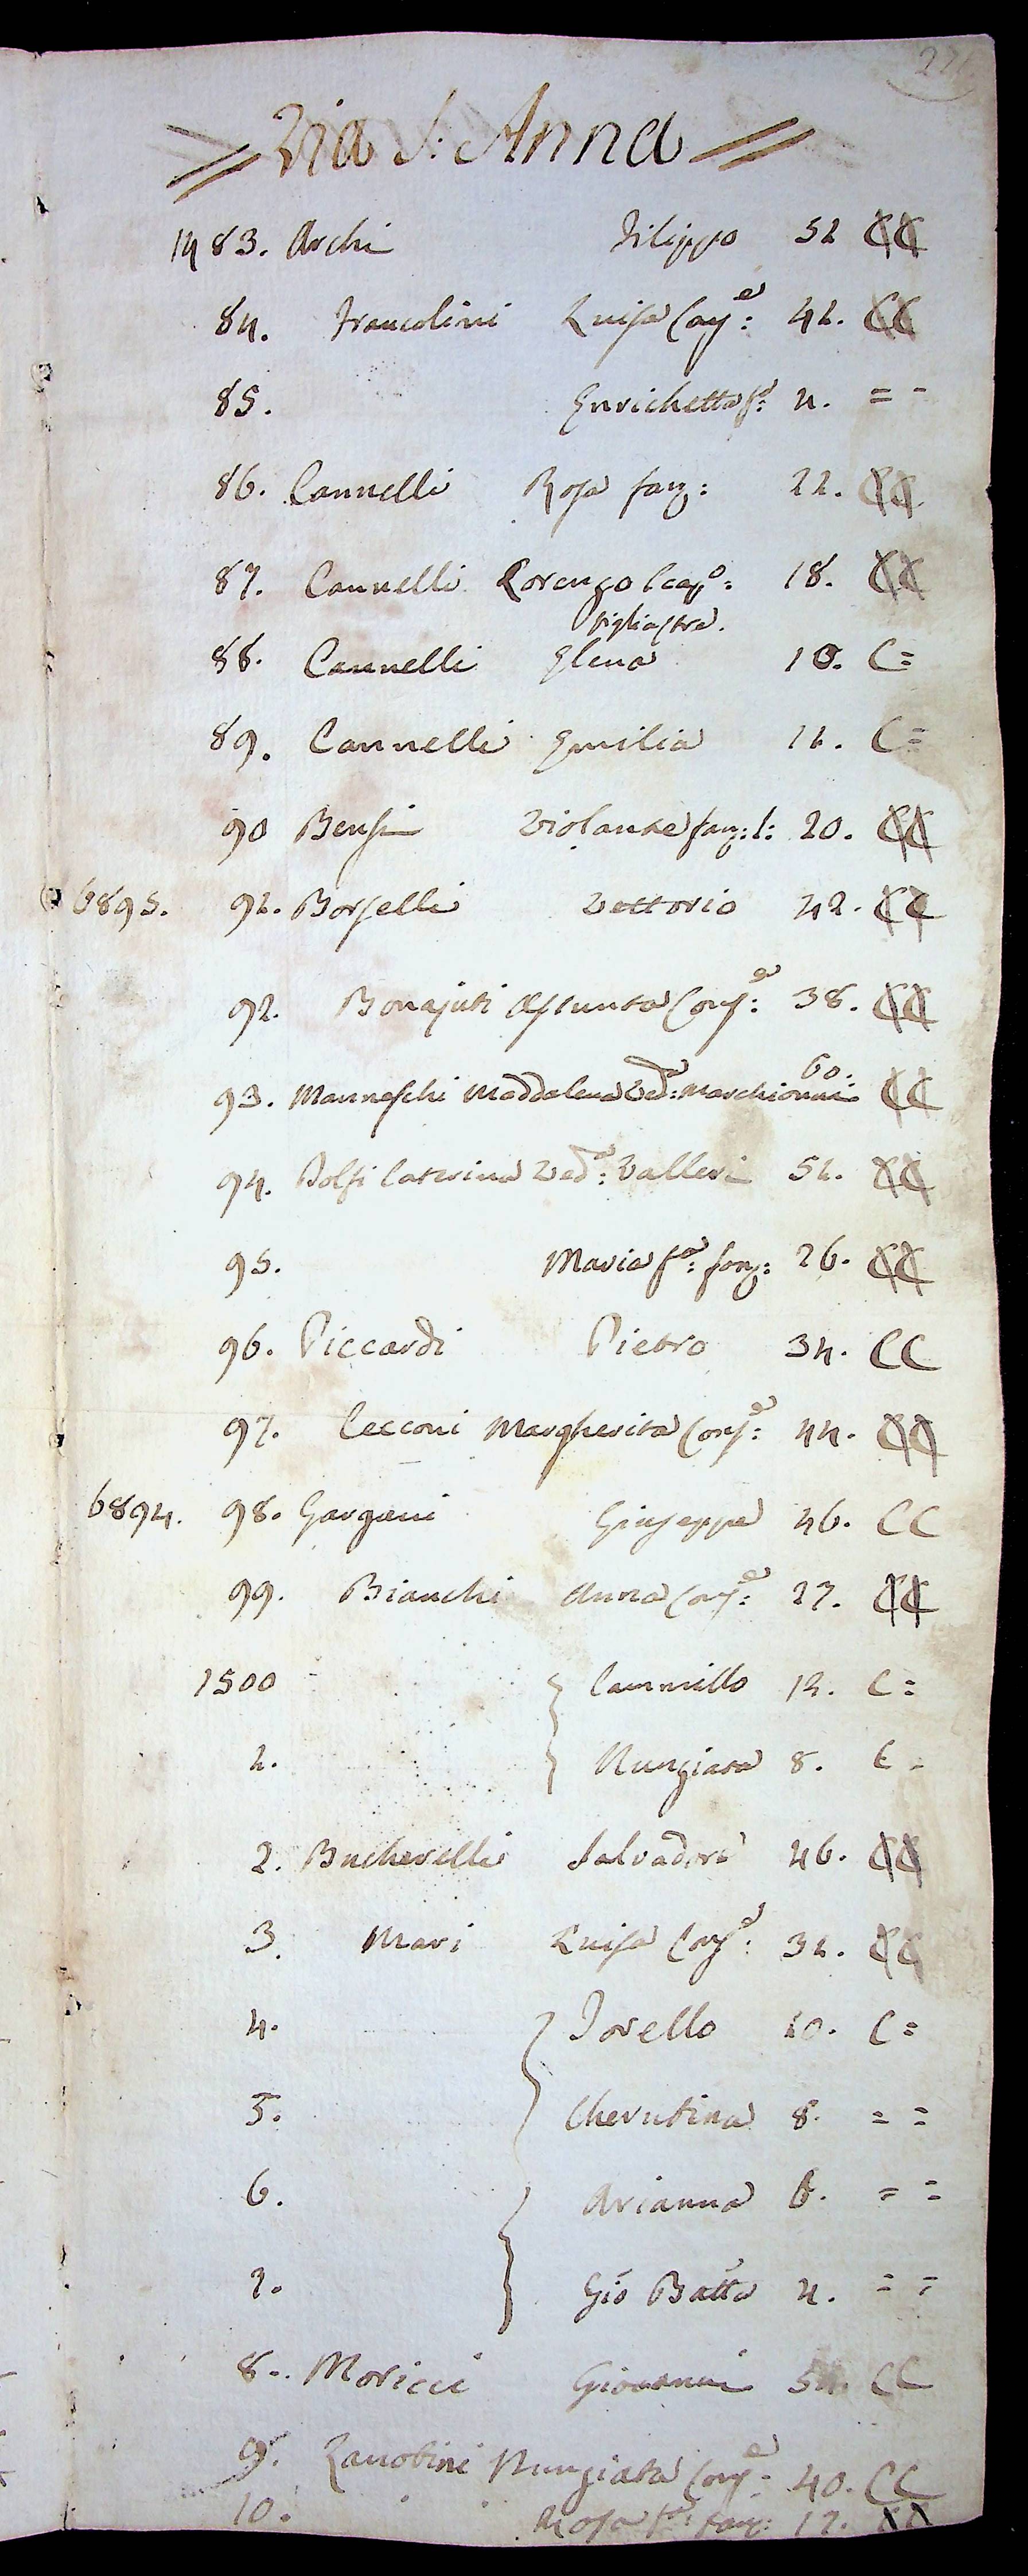 Via S: Anna
1483. Archi Filippo 52 CC
84. Francolini Luisa Conj:e 42. CC
85. Enrichetta f:a 4. = =
86. Cannelli Rosa fan: 22. CC
87. Cannelli Lorenzo Scap:o 18. CC
figliastra.
88. Cannelli Elena 10. C=
89. Cannelli Emilia 12. C=
90 Bensi Violante fan: l: 20. CC
6895. 91. Borselli Vettorio 42. CC
92. Bonajuti Assunta Conj:e 38. CC
60.
93. Manneschi Maddalena Ved:a Marchionni CC
94. Dolfi Caterina Ved:a Valleri 52. CC
95. Maria f:a fan: 26. CC
96. Piccardi Pietro 34. CC
97. Cecconi Margherita Conj:e 44. CC
6894. 98. Gargani Giuseppe 46. CC
99. Bianchi Anna Conj:e 27. CC
1500 Cammillo 12. C=
1. Nunziata 8. C=
2. Bucherelli Salvadore 46. CC
3. Mari Luisa Conj:e 32. CC
4. Torello 10. C=
5. Cherubina 8. = =
6. Arianna 6. = =
7. Gio Batta 4. = =
8. Moricci Giovanni 54. CC
9. Zanobini Nunziata Conj:e 40. CC
10. Rosa f:a fan: 17. CC